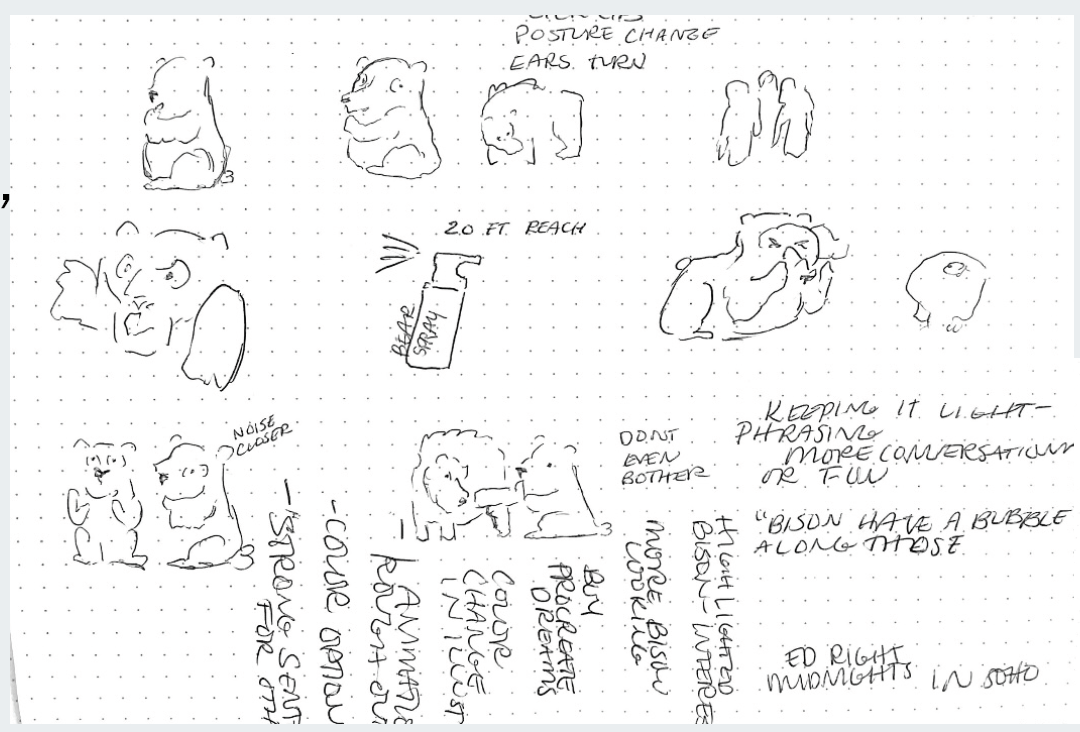 POSTURE CHANGE
EARS TURN
20 FT. REACH
BEAR
SPRAY
NOISE
CLOSER
DONT
EVEN
BOTHER
KEEPING IT LIGHT-
PHRASING
MORE CONVERSATION
OR FUN
"BISON HAVE A BUBBLE
ALONG THOSE
- STRONG SENT
FOR OTH
- COLOR OPTION
- ANIMATIC
ROUGH OU
COLOR
CHANGE
IN ILLUST
BUY
PROCREATE
DREAMS
MORE BISON
LOOKING
HIGHLIGHTED
BISON- INTERES
ED RIGHT
MIDNIGHTS IN SOHO